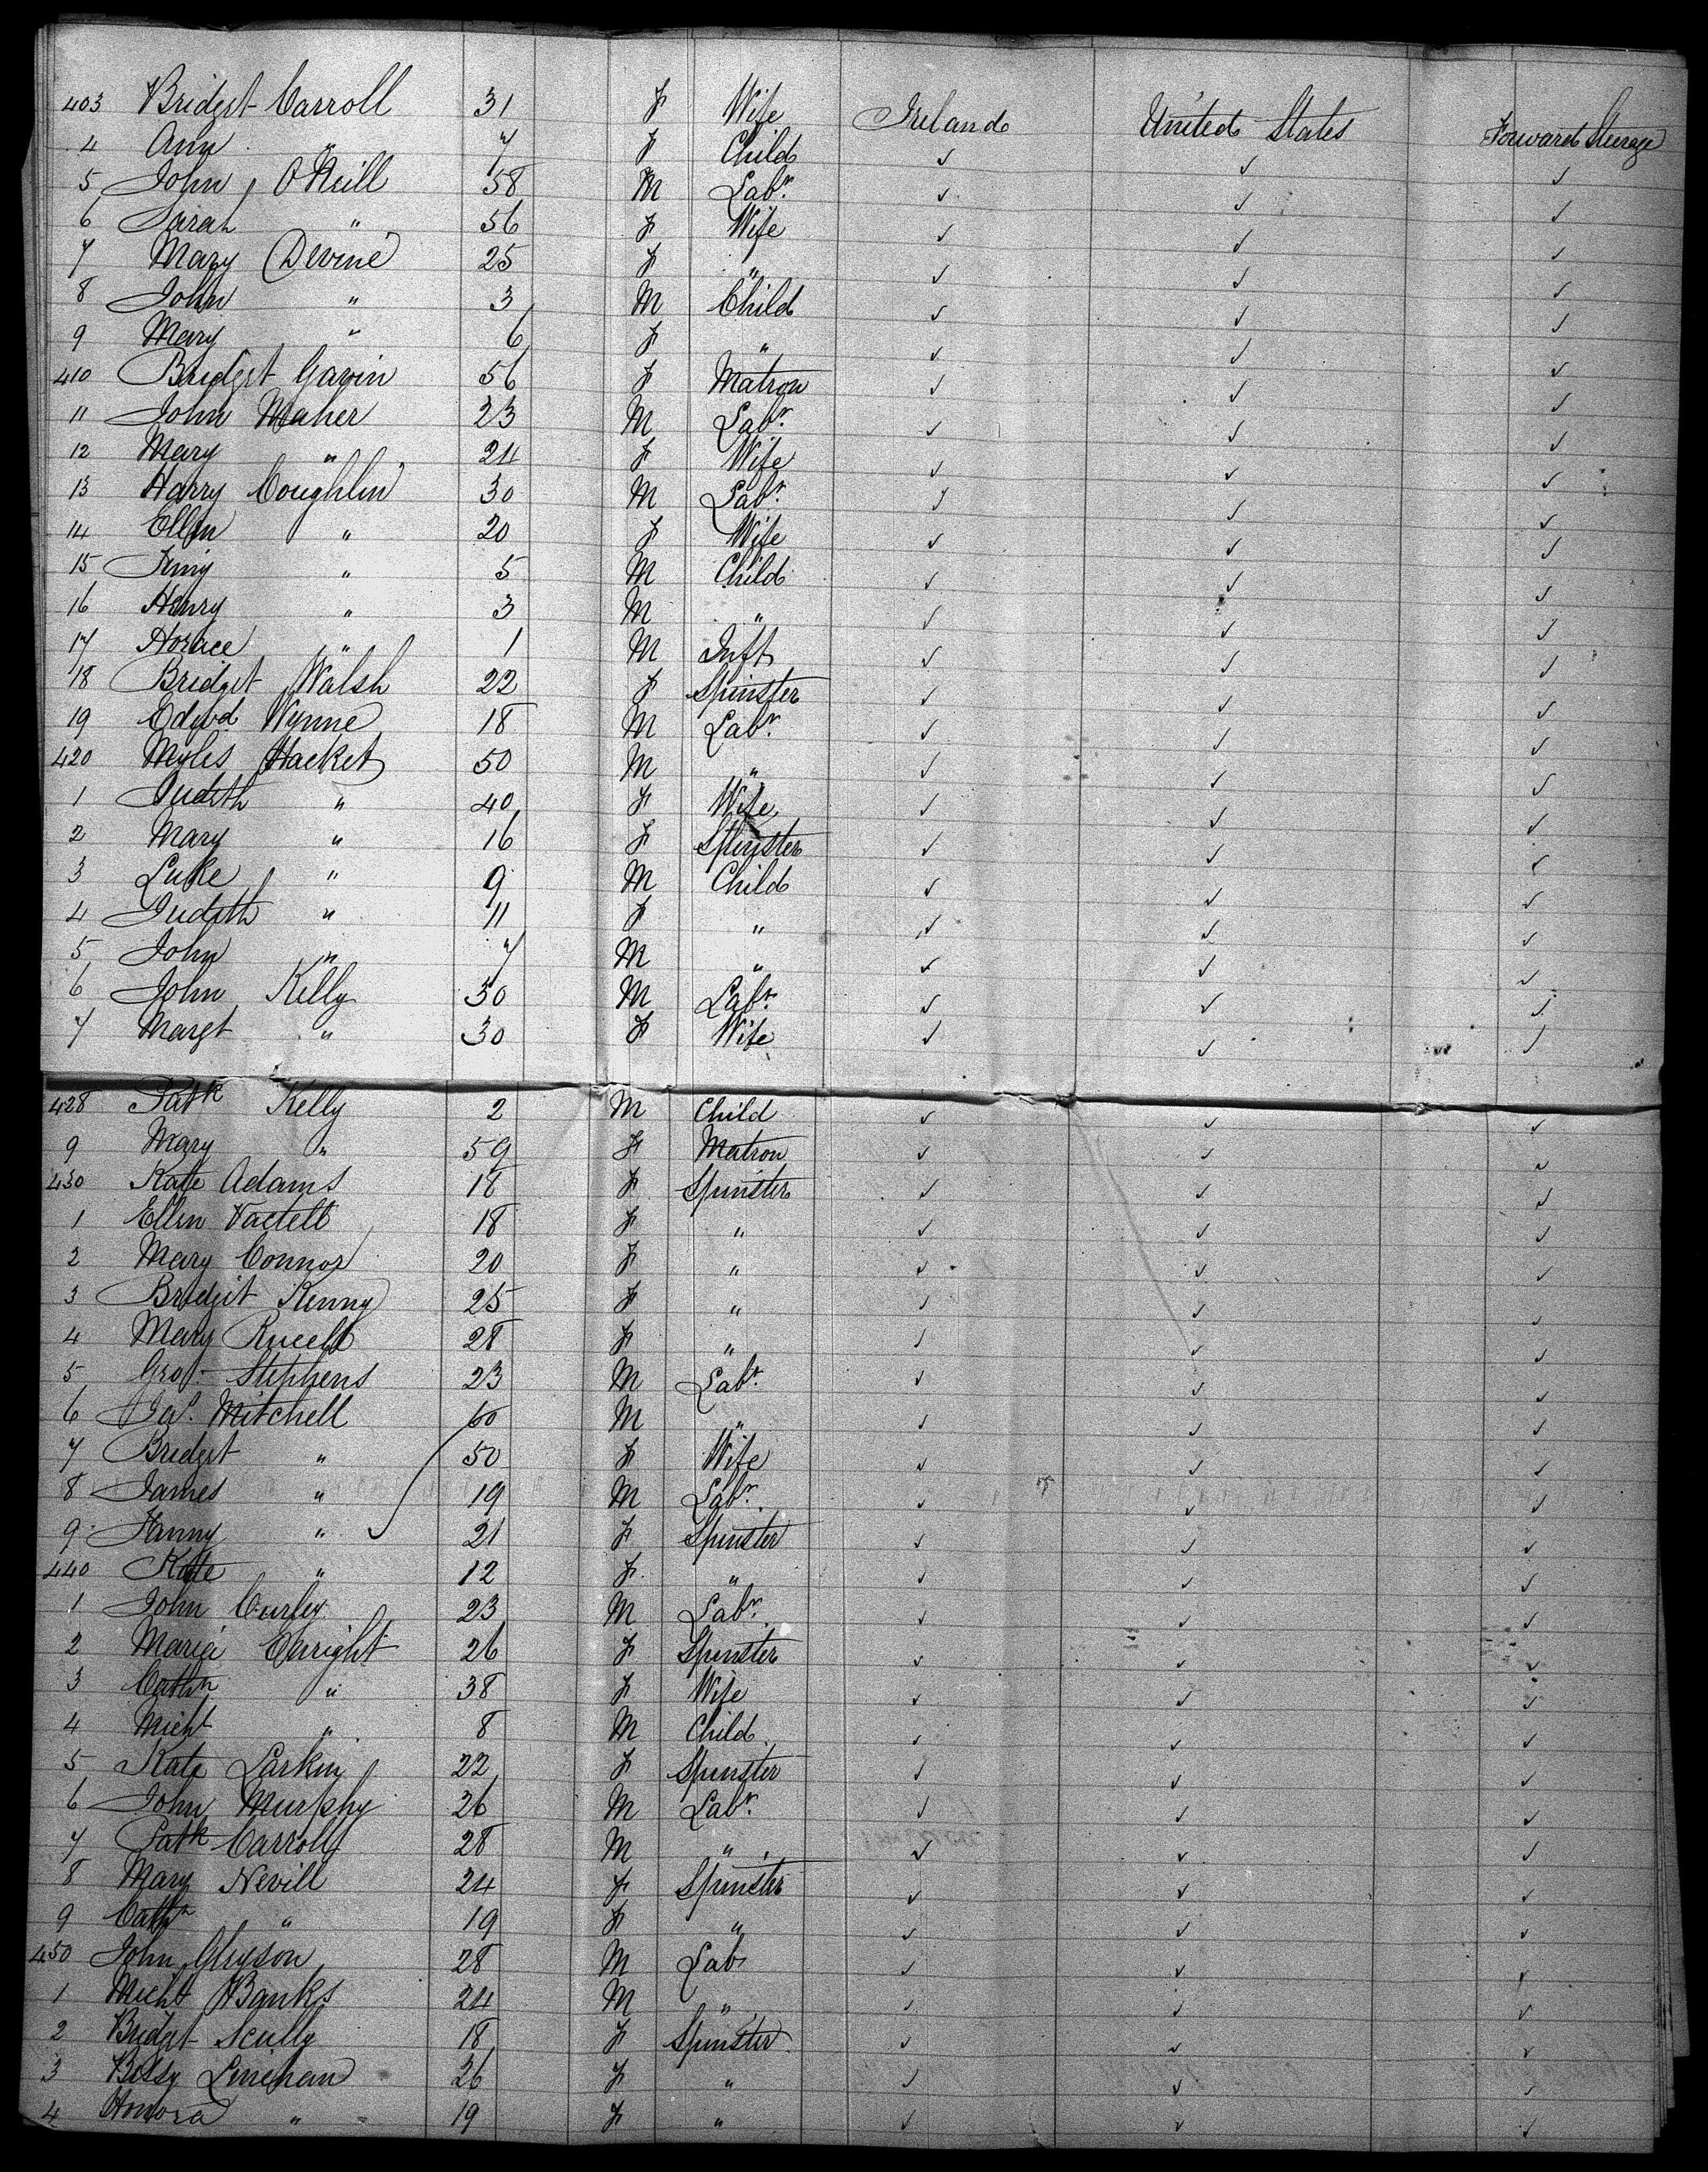 403 Bridget Carroll 31 F Wife Ireland United States Forward Steerage
4 Ann " 7 F Child ✓ ✓ ✓
5 John O'Neill 58 M Labr. ✓ ✓ ✓
6 Sarah " 56 F Wife ✓ ✓ ✓
7 Mary Devine 25 F " ✓ ✓ ✓
8 John " 3 M Child ✓ ✓ ✓
9 Mary " 6 F " ✓ ✓ ✓
410 Bridget Gavin 56 F Matron ✓ ✓ ✓
11 John Maher 23 M Labr. ✓ ✓ ✓
12 Mary " 24 F Wife ✓ ✓ ✓
13 Harry Coughlin 30 M Labr. ✓ ✓ ✓
14 Ellen " 20 F Wife ✓ ✓ ✓
15 " 5 M Child ✓ ✓ ✓
16 Henry " 3 M " ✓ ✓ ✓
17 Horace " 1 M Inft ✓ ✓ ✓
18 Bridget Walsh 22 F Spinster ✓ ✓ ✓
19 Edwd Wynne 18 M Labr. ✓ ✓ ✓
420 Myles Hacket 50 M " ✓ ✓ ✓
1 Judith " 40 F Wife ✓ ✓ ✓
2 Mary " 16 F Spinster ✓ ✓ ✓
3 Luke " 9 M Child ✓ ✓ ✓
4 Judith " 11 F " ✓ ✓ ✓
5 John " 7 M " ✓ ✓ ✓
6 John Kelly 30 M Labr. ✓ ✓ ✓
7 Margt " 30 F Wife ✓ ✓ ✓
428 Patk Kelly 2 M Child ✓ ✓ ✓
9 Mary " 59 F Matron ✓ ✓ ✓
430 Kate Adams 18 F Spinster ✓ ✓ ✓
1 Ellen 18 F " ✓ ✓ ✓
2 Mary Connor 20 F " ✓ ✓ ✓
3 Bridgit Kenny 25 F " ✓ ✓ ✓
4 Mary 28 F " ✓ ✓ ✓
5 Geo. Stephens 23 M Labr. ✓ ✓ ✓
6 Jas. Mitchell 60 M " ✓ ✓ ✓
7 Bridget " 50 F Wife ✓ ✓ ✓
8 James " 19 M Labr. ✓ ✓ ✓
9 Fanny " 21 F Spinster ✓ ✓ ✓
440 Kate " 12 F " ✓ ✓ ✓
1 John Curley 23 M Labr. ✓ ✓ ✓
2 Maria Enright 26 F Spinster ✓ ✓ ✓
3 Cathn " 38 F Wife ✓ ✓ ✓
4 Michl " 8 M Child ✓ ✓ ✓
5 Kate Larkin 22 F Spinster ✓ ✓ ✓
6 John Murphy 26 M Labr. ✓ ✓ ✓
7 Patk Carroll 28 M " ✓ ✓ ✓
8 Mary Nevill 24 F Spinster ✓ ✓ ✓
9 Cathn " 19 F " ✓ ✓ ✓
450 John Gleyson 28 M Labr ✓ ✓ ✓
1 Michl Banks 24 M " ✓ ✓ ✓
2 Bridget Scully 18 F Spinster ✓ ✓ ✓
3 Bessy Linehan 26 F " ✓ ✓ ✓
4 Honora " 19 F " ✓ ✓ ✓